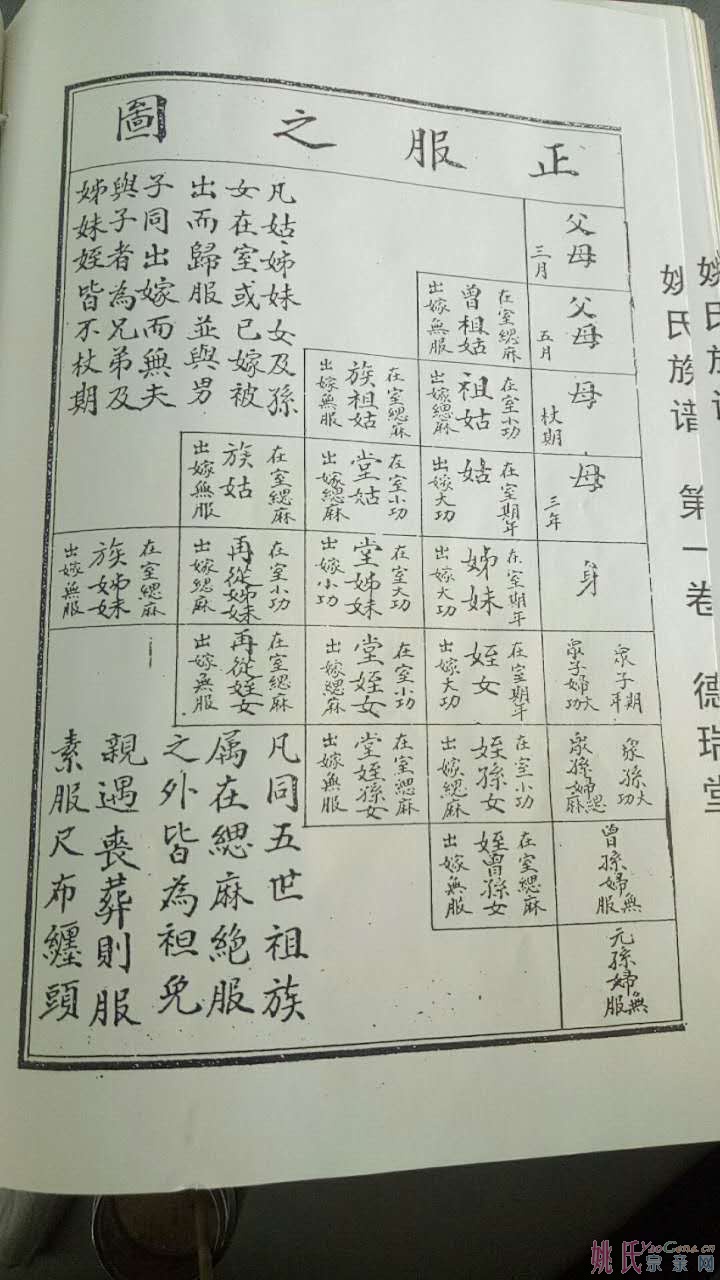 正服之圖
父母
三月
父母
五月
在室緦麻
曾祖姑
出嫁無服
母
杖期
在室小功
祖姑
出嫁緦麻
在室緦麻
族祖姑
出嫁無服
母
三年
在室期年
姑
出嫁大功
在室小功
堂姑
出嫁緦麻
在室緦麻
族姑
出嫁無服
身
在室期年
姊妹
出嫁大功
在室大功
堂姊妹
出嫁小功
在室小功
再從姊妹
出嫁緦麻
在室緦麻
族姊妹
出嫁無服
衆子期年
衆子婦大功
在室期年
姪女
出嫁大功
在室小功
堂姪女
出嫁緦麻
在室緦麻
再從姪女
出嫁無服
衆孫大功
衆孫婦緦麻
在室小功
姪孫女
出嫁緦麻
在室緦麻
堂姪孫女
出嫁無服
曾孫婦無服
在室緦麻
姪曾孫女
出嫁無服
元孫婦無服
凡姑姊妹女及孫
女在室或已嫁被
出而歸服並與男
子同出嫁而無夫
與子者為兄弟及
姊妹姪皆不杖期
凡同五世祖族
属在緦麻絕服
之外皆為袒免
親遇喪葬則服
素服尺布纏頭
姚氏族谱 第一卷 德瑞堂
姚氏族谱
姚氏宗亲网
YaoGens.cn